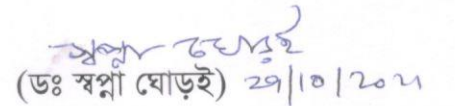 স্বপ্না ঘোড়ই
(ডঃ স্বপ্না ঘোড়ই) 29/10/2021